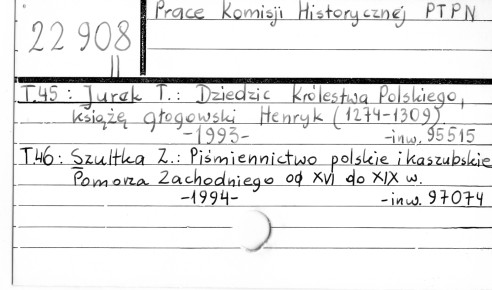 Prace Komisji Historycznej PTPN
22 908
II
T.45 : Jurek T.: Dziedzic Królestwa Polskiego,
książę głogowski Henryk (1274-1309)
-1993- -inw. 95515
T.46 : Szultka Z.: Piśmiennictwo polskie i kaszubskie
Pomorza Zachodniego od XVI do XIX w.
-1994- -inw. 97074